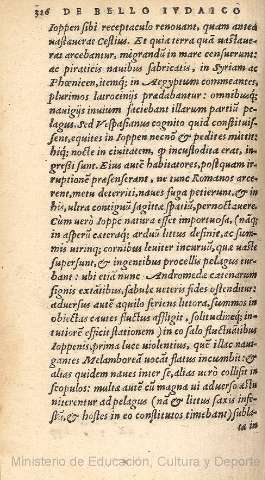 326 DE BELLO IVDAICO
Ioppen sibi receptaculo renouant, quam antea
uastauerat Cestius. Et quia terra quā uastaue-
rat arcebantur, migrandū in mare censuerunt:
ac piraticis nauibus fabricatis, in Syriam ac
Phœnicen, itemq; in Aegyptum commeantes,
plurimos latrocinijs prædabantur: omnibusq;
nauigijs inuium faciebant illarum partiū pe-
lagus. Sed Vespasianus cognito quid constituis-
sent, equites in Ioppen necnō & pedites mittit:
hiq; nocte in ciuitatem, ꝙ incustodita erat, in-
gressi sunt. Eius autē habitatores, postquam ir-
ruptionē præsenserant, ne tunc Romanos arce-
rent, metu deterriti, naues fuga petierunt, & in
his, ultra coniugiū sagittæ spatiū, pernoctauere.
Cum uerò Ioppe natura esset importuosa, (nāq;
in asperū cateruā; arduū litus definie, ac sum-
mis utrinq; cornibus leuiter incuruū, quæ uastæ
supersunt, & ingentibus procellis pelagus tur-
bant: ubi etiā nunc Andromedæ catenarum
signis extātibus, fabulæ ueteris fides ostenditur:
aduersus autē aquilo feriens littora, summos in
obiectas cautes fluctus affligit, solitudineq; in-
tutiorē efficit stationem) in eo salo fluctuātibus
Ioppenis, prima luce uiolentius, quem illac naui-
gantes Melamborea uocāt flatus incumbit: &
alias quidem naues inter se, alias uerò collisit in
scopulos: multæ autē cū magna ui aduerso æstu
niterentur ad pelagus (nā & littus saxis infe-
stū, & hostes in eo constitutos timebant) subla-
ta in
Ministerio de Educación, Cultura y Deporte